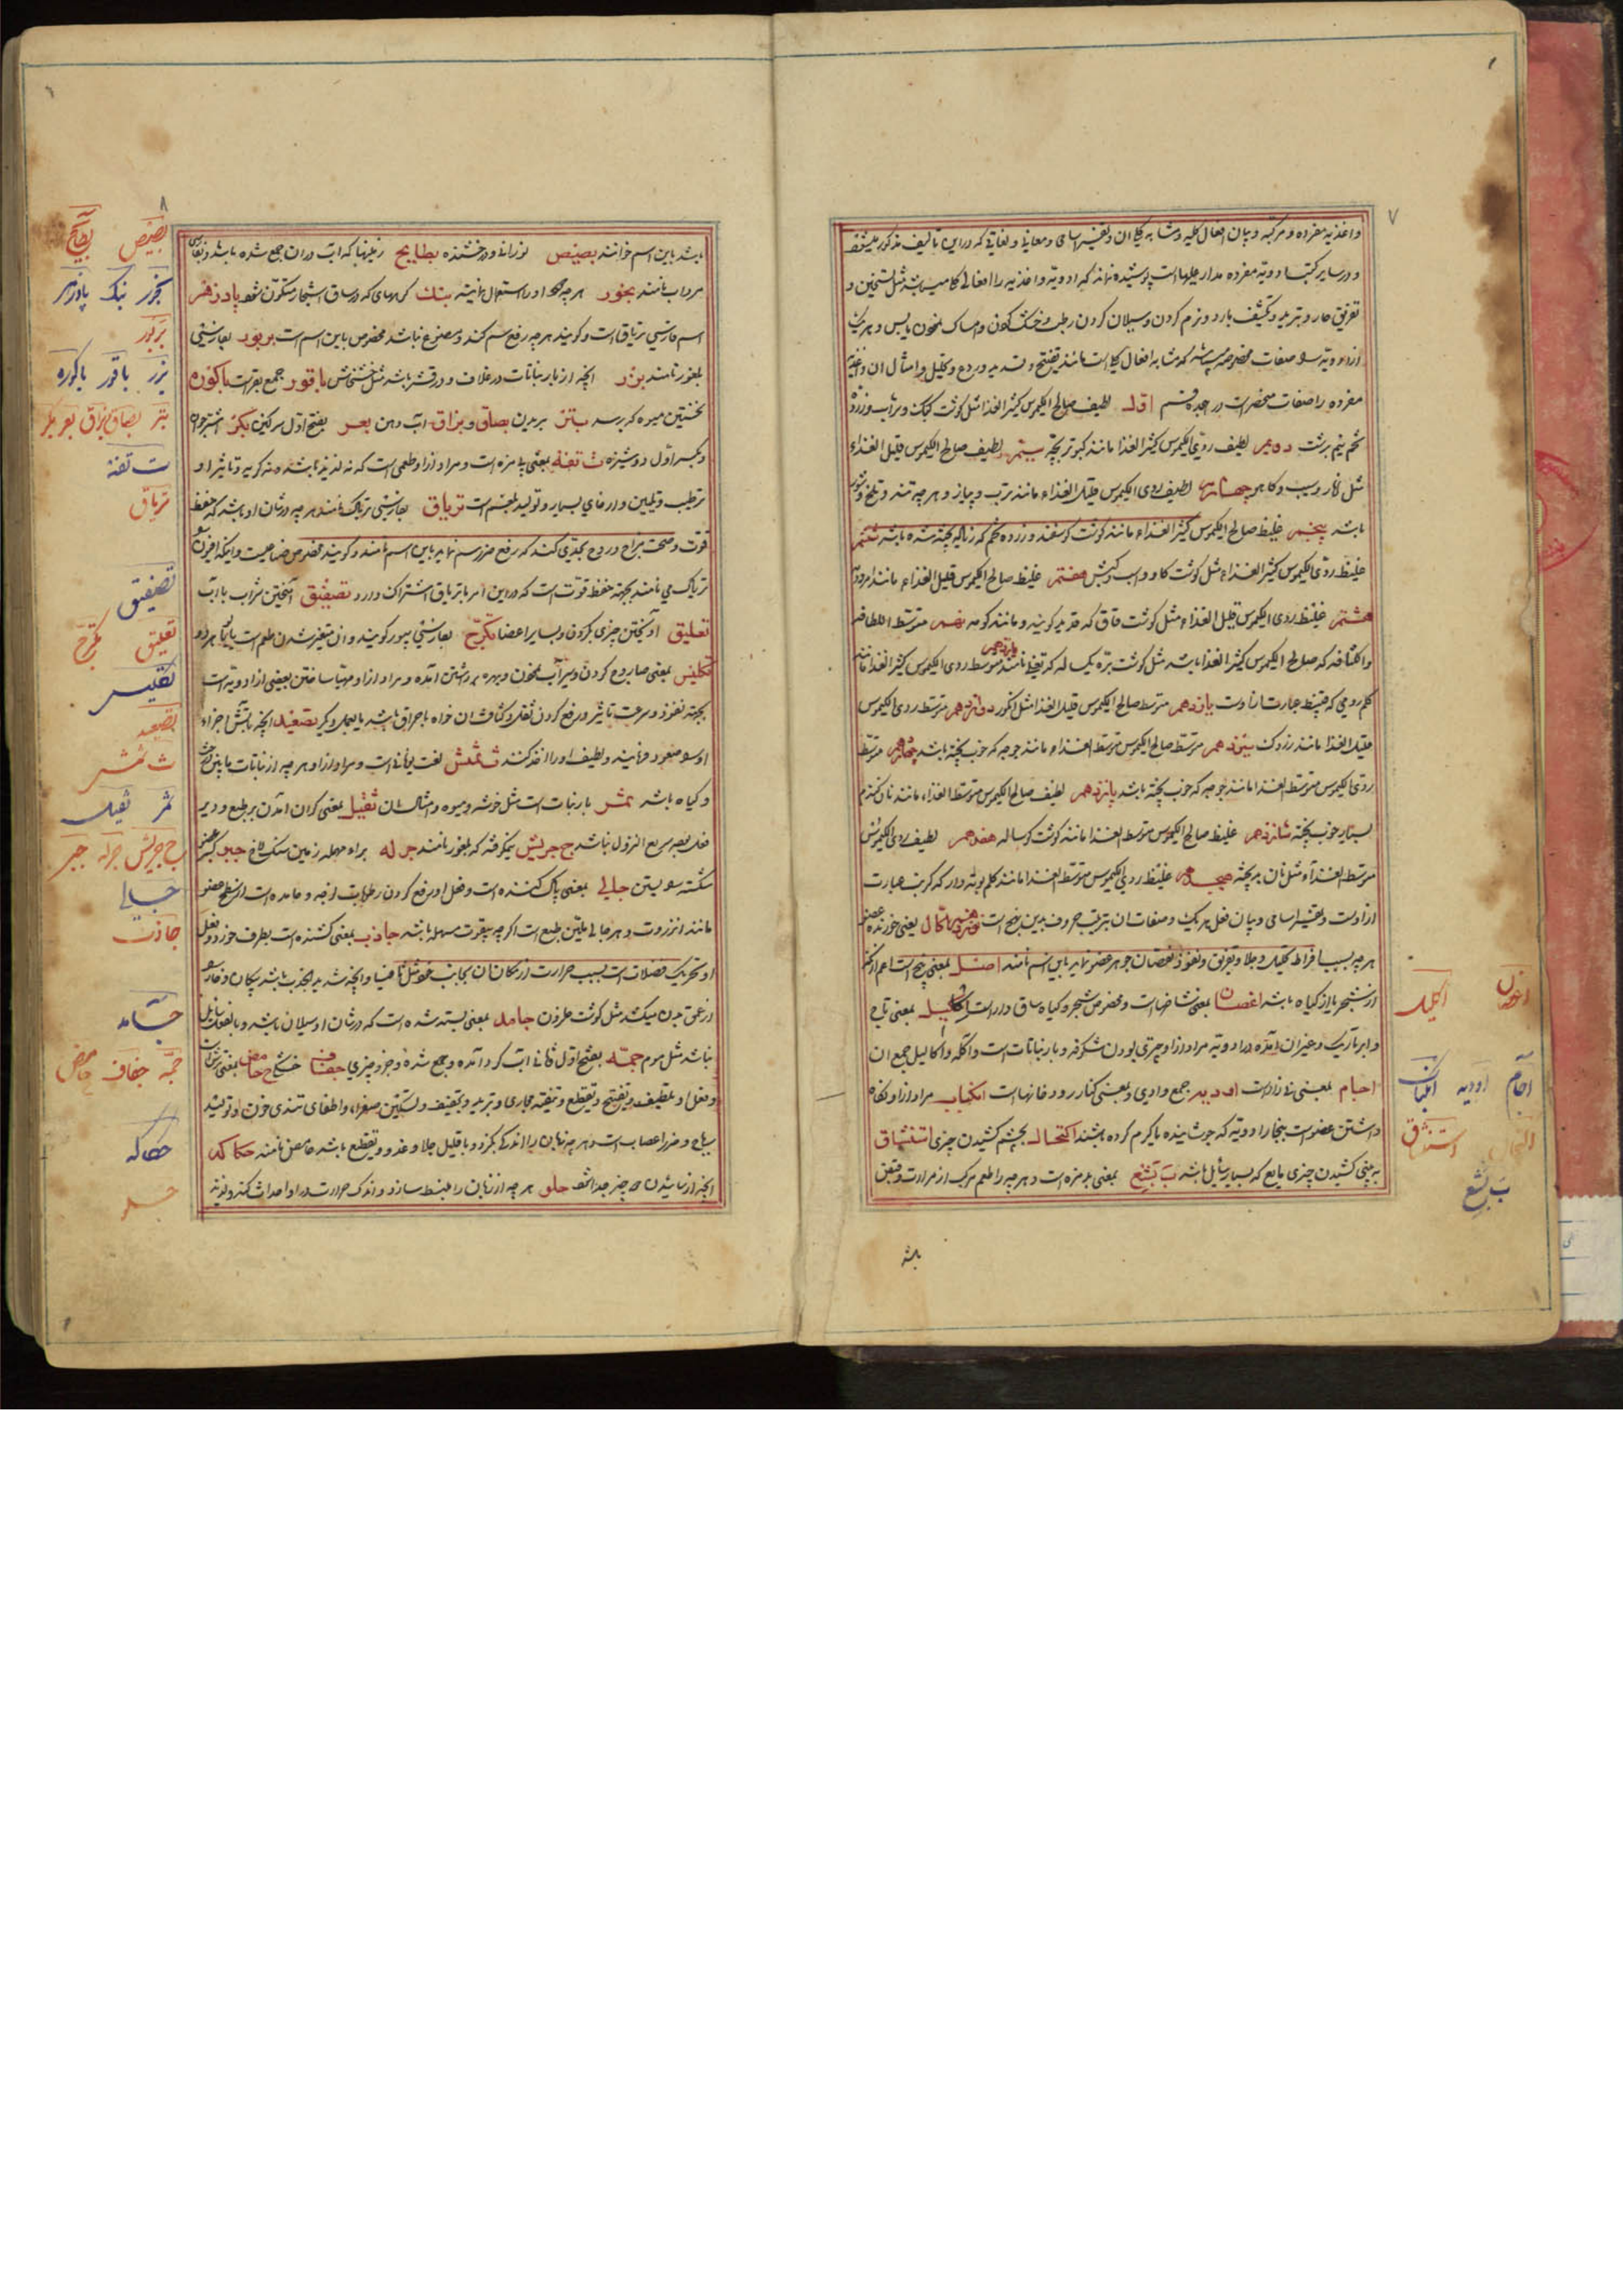 ۷
واغذیه مفرده و مرکبه و بیان افعال کلیه و مشابه کلیه ان و تفسیر اسامی و معانی و لغاتی که در این تالیف مذکور میشود
و در سایر کتب ادویه مفرده مدار علیها است پوشیده نماند که ادویه و اغذیه را افعال کلی میباشد مثل تسخین و
تفریق حار و تبرید و تکثیف بارد و نرم کردن و سیلان کردن رطب و خشک کردن و امساک نمودن یابس و هر یک
از ادویه صفات مخصوصه میباشد که مشابه افعال کلی است مانند تفتیح و تسدید و ردع و تحلیل و امثال ان و اغذیه
مفرده را صفات منحصر است در هجده قسم اول لطیف صالح الکیموس کثیر الغذا مثل گوشت کبک و شراب و زرده
تخم نیم برشت دویم لطیف ردی الکیموس کثیر الغذا مانند کبوتر بچه سیم لطیف صالح الکیموس قلیل الغذاء
مثل انار و سیب و کاهو چهارم لطیف ردی الکیموس قلیل الغذاء مانند ترب و پیاز و هر چه تند و تلخ و شور
باشد پنجم غلیظ صالح الکیموس کثیر الغذاء مانند گوشت گوسفند و زرده تخم که زیاد پخته شده باشد ششم
غلیظ ردی الکیموس کثیر الغذاء مثل گوشت گاو و اسب و کبش هفتم غلیظ صالح الکیموس قلیل الغذاء مانند امرود
هشتم غلیظ ردی الکیموس قلیل الغذاء مثل گوشت قاق که قدید گویند و مانند کومه نهم متوسط اللطافه
والکثافه که صالح الکیموس کثیر الغذا باشد مثل گوشت بره یک ساله که تغلی نامند دهم متوسط ردی الکیموس کثیر الغذا مانند
کلم رومی که قنبیط عبارت از اوست یازدهم متوسط صالح الکیموس قلیل الغذا مثل انگور دوازدهم متوسط ردی الکیموس
قلیل الغذا مانند زردک سیزدهم متوسط صالح الکیموس متوسط الغذاء مانند جوجه که خوب پخته باشد چهاردهم متوسط
ردی الکیموس متوسط الغذا مانند جوجه که خوب پخته باشد پانزدهم لطیف صالح الکیموس متوسط الغذاء مانند نان گندم
بسیار خوب پخته شانزدهم غلیظ صالح الکیموس متوسط الغذا مانند گوشت گوساله هفدهم لطیف ردی الکیموس
متوسط الغذاء مثل نان بد پخته هجدهم غلیظ ردی الکیموس متوسط الغذا مانند کلم بوته دار که کرنب عبارت
از اوست و تفسیر اسامی و بیان فعل هر یک و صفات ان بترتیب حروف بدین نهج است اکال یعنی خورنده عضو
هر چه بسبب افراط تحلیل و جلا و تفریق و نفوذ نقصان جوهر عضو نماید باین اسم نامند اصل بمعنی بیخ است اعم از انکه
از شجر یا از گیاه باشد اغصان بمعنی شاخهاست و مخصوص شجر و گیاه ساق دار است اکلیل بمعنی تاج
و ابر تاریک و غیر ان امده و در ادویه مراد از او چیزی بودن شکوفه و بار نباتات است و اکله و اکالیل جمع ان
اجام بمعنی نی زارهاست اودیه جمع وادی و بمعنی کنار رودخانهاست انکباب مراد از او نگاه
داشتن عضو است ببخار ادویه که جوشانیده یا گرم کرده باشند اکتحال بچشم کشیدن چیزی استنشاق
به بینی کشیدن چیزی مایع که بسیار سائل باشد ب بشع بمعنی بد مزه است و هر چه را طعم مرکب از مرارت و قبض
باشد
اغصان اکلیل
اجام اودیه انکباب
اکتحال استنشاق
ب بشع
۸
باشد باین اسم خوانند بصیص نورانی و درخشنده بطایح زمینها که اب در ان جمع شده باشد و بفارسی
مرداب نامند بخور هر چه بخار او را استعمال نمایند بنک گرههای که در ساق اشجار متکون شود پادزهر
اسم فارسی تریاق است و گویند هر چه رفع سم کند و مصنوع نباشد مخصوص باین اسم است بربور بفارسی
بلغور نامند بزر انچه از بار نباتات در غلاف و در قشر باشد مثل خشخاش باقور جمع بقر است باکوره
نخستین میوه که برسد بتر بریدن بصاق و بزاق اب دهن بعر بفتح اول سرگین بکر اشتر جوان
و بکسر اول دوشیزه ت تفه بمعنی بیمزه است و مراد از او طعمی است که نه لذیذ باشد و نه کریه و تاثیر او
ترطیب و تلیین و ارخای بسیار و تولید بلغم است تریاق بفارسی تریاک نامند هر چه در شان او باشد که حفظ
قوت و صحت مزاج و روح بحدی کند که رفع ضرر سم نماید باین اسم نامند و گویند مخصوص صناعیست و اینکه افیون را
تریاک می نامند بجهة حفظ قوت است که در این امر با تریاق اشتراک دارد تصفیق امیختن شراب با اب
تعلیق اویختن چیزی بگردن و بسایر اعضا تکرج بفارسی پیور گویند و ان متغیر شدن طعم است
تکلیس بمعنی صاروج کردن و سیراب نمودن و بهره برداشتن امده و مراد از او مهیا ساختن بعضی از ادویه است
بجهة نفوذ و سرعت تاثیر و رفع کردن ثقل و کثافت ان خواه باحراق باشد یا بعمل دیگر تصعید انچه باتش اجزاء
او صعود فرمایند و لطیف او را اخذ کنند ث ثمنش لغت یونانی است و مراد از او هر چه از نباتات مابین درخت
و گیاه باشد ثمر بار نبات است مثل خوشه و میوه و امثال ان ثقیل بمعنی گران امدن بر طبع و دیر
فعل بعد سریع النزول نباشد ج جریش نیمکوفته که بلغور نامند جرله براء مهمله زمین سنگلاخ جبر
شکسته بستن جالی بمعنی پاک کننده است و فعل او رفع کردن رطوبات لزجه و جامده است از سطح عضو
مانند انزروت و هر جالی ملین طبع است اگر چه بقوت مسهله باشد جاذب بمعنی کشنده است بطرف خود و فعل
او تحریک فضلات است بسبب حرارت از مکان ان بجانب خود مثل ثافسیا و انچه شدید الجذب باشد پیکان و خار را
از عمق بدن میکشد مثل گوشت حلزون جامد بمعنی بسته شده است که در شان او سیلان باشد و بالفعل سایل
نباشد مثل موم جمه بفتح اول ثانی اب گرد امده و جمع شده و جزو چیزی جفاف خشکی ح حامض بمعنی ترش است
و فعل او تلطیف و تفتیح و تقطیع و تنقیه مجاری و تبرید و تجفیف و تسکین صفرا، و اطفای تندی خون و تولید
ریاح و ضرر اعصاب است و هر چه زبان را اندکی بگزد و با قلیل جلا و غور و تقطیع باشد حامض نامند حکاکه
انچه از سائیدن دو چیز جدا شود حلو هر چه از زبان را منبسط سازد و اندک حرارت در او احداث کند و لذیذ
بصیص بطایح
بخور بنک پادزهر
بربور
بزر باقور باکوره
بتر بصاق بزاق بعر بکر
ت تفه
تریاق
تصفیق
تعلیق تکرج
تکلیس
تصعید
ث ثمنش
ثمر ثقیل
ج جریش جرله جبر
جالی
جاذب
جامد
جمه جفاف حامض
حکاکه
حلو